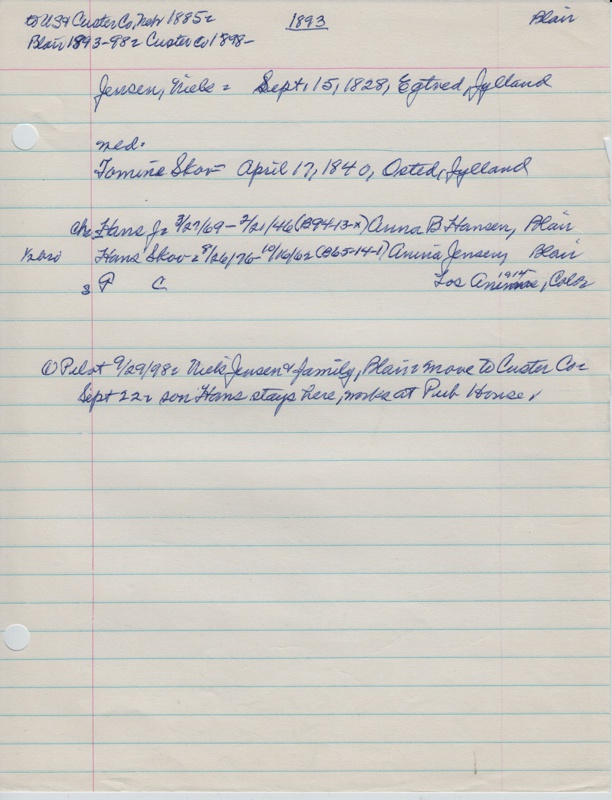 to USA Custer Co, Nebr 1885= 1893 Blair
Blair 1893-98= Custer Co 1898-
Jensen, Niels = Sept. 15, 1828, Egtved, Jylland
med.
Tomine Skov- April 17, 1840, Osted, Jylland
Ch. Hans J= 3/27/69 - 2/21/46 (B94-13-x) Anna B Hansen, Blair
Hans Skov = 8/26/76 - 10/16/62 (B65-14-1) Anina Jensen, Blair
3 P C 1914 Los Animas, Colo
① Pilot 9/29/98= Niels Jensen & family, Blair = move to Custer Co=
Sept 22= son Hans stays here, works at Pub House.